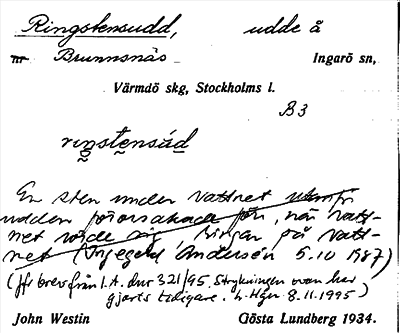 Ringstensudd, udde å
nr Brunnsnäs Ingarö sn,
Värmdö skg, Stockholms l.
B3
ringstensùd
En sten under vattnet utanför
udden förorsakade förr, när vatt-
net rörde sig, ringar på vatt-
net (Ingegerd Andersén 5.10 1987)
(Jfr brev från I.A. dnr 321/95, Strykningen ovan har
gjorts tidigare. L. Hgn 8.11.1995)
John Westin Gösta Lundberg 1934.